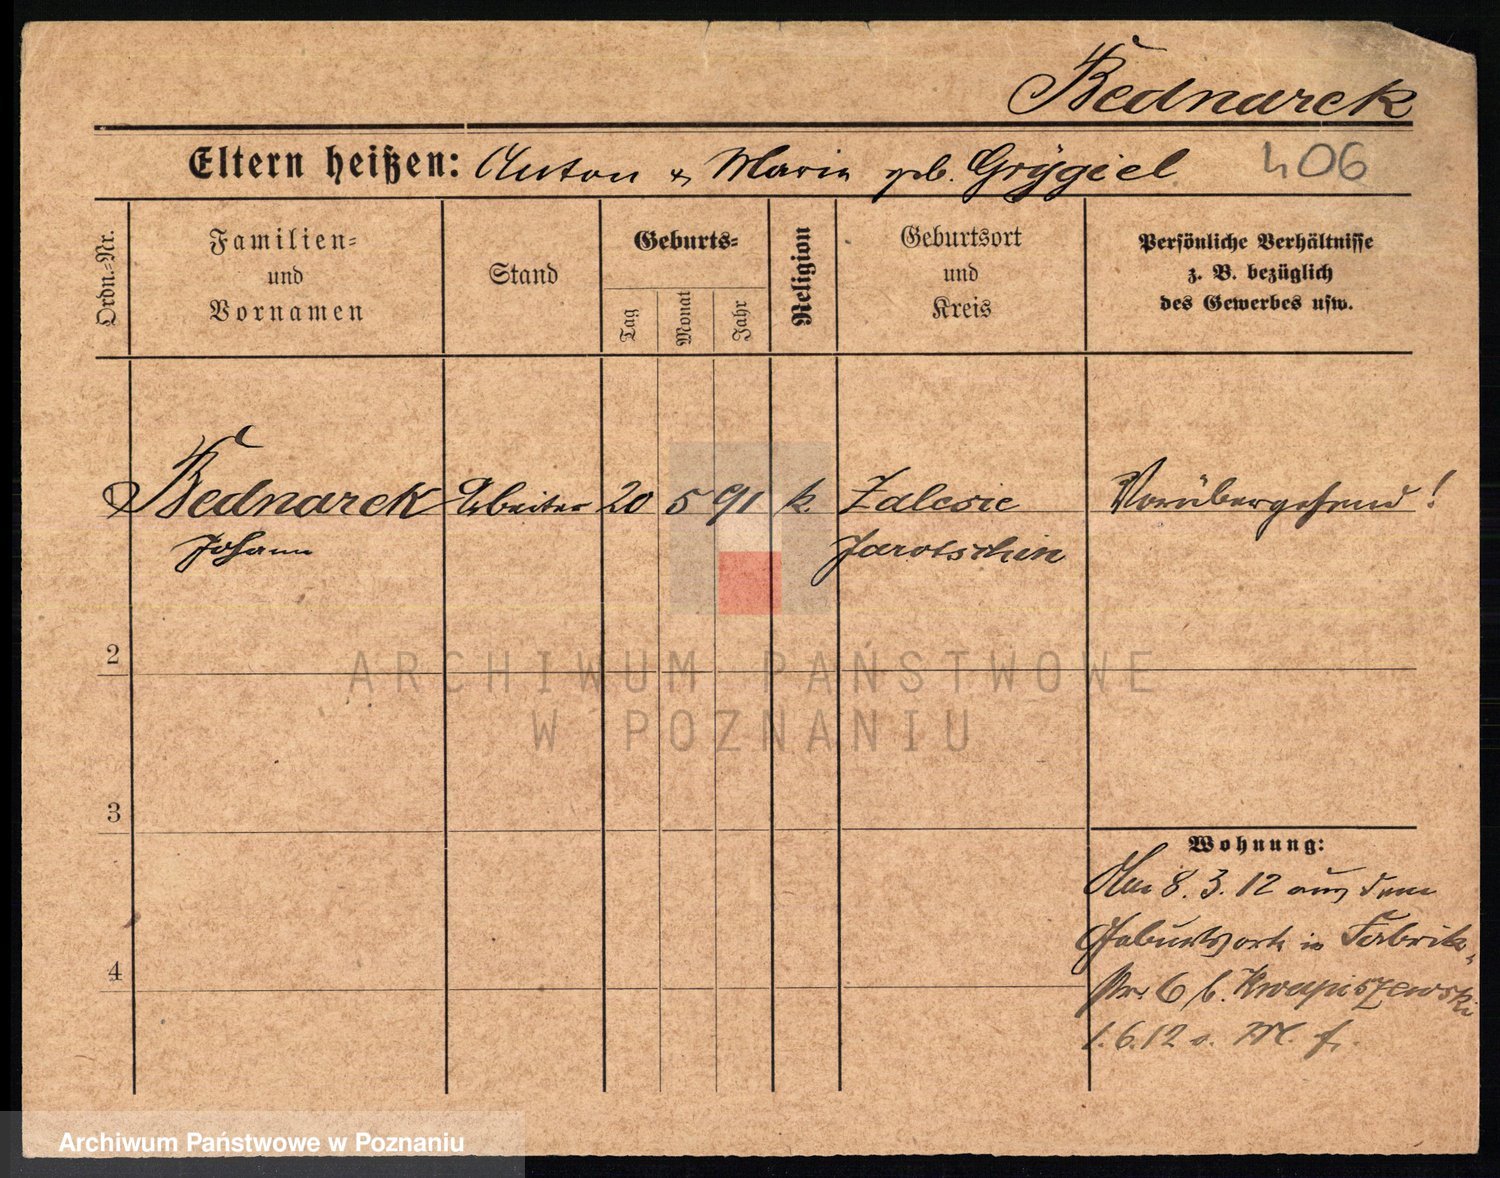 Bednarek
Eltern heißen: Anton & Maria geb. Grÿgiel 406
Ordn.=Nr.
Familien=
und
Vornamen
Stand
Geburts=
Tag
Monat
Jahr
Religion
Geburtsort
und
Kreis
Persönliche Verhältnisse
z. B. bezüglich
des Gewerbes usw.
1 Bednarek Arbeiter 20 5 91 k. Zalesie Vorübergehend!
Johann Jarotschin
2
ARCHIWUM PAŃSTWOWE
W POZNANIU
3
Wohnung:
Am 8.3.12 aus dem
Geburtsort in Fabrik-
str. 6 b. Kwapiszewski
4
1.6.12 o. M. f.
Archiwum Państwowe w Poznaniu